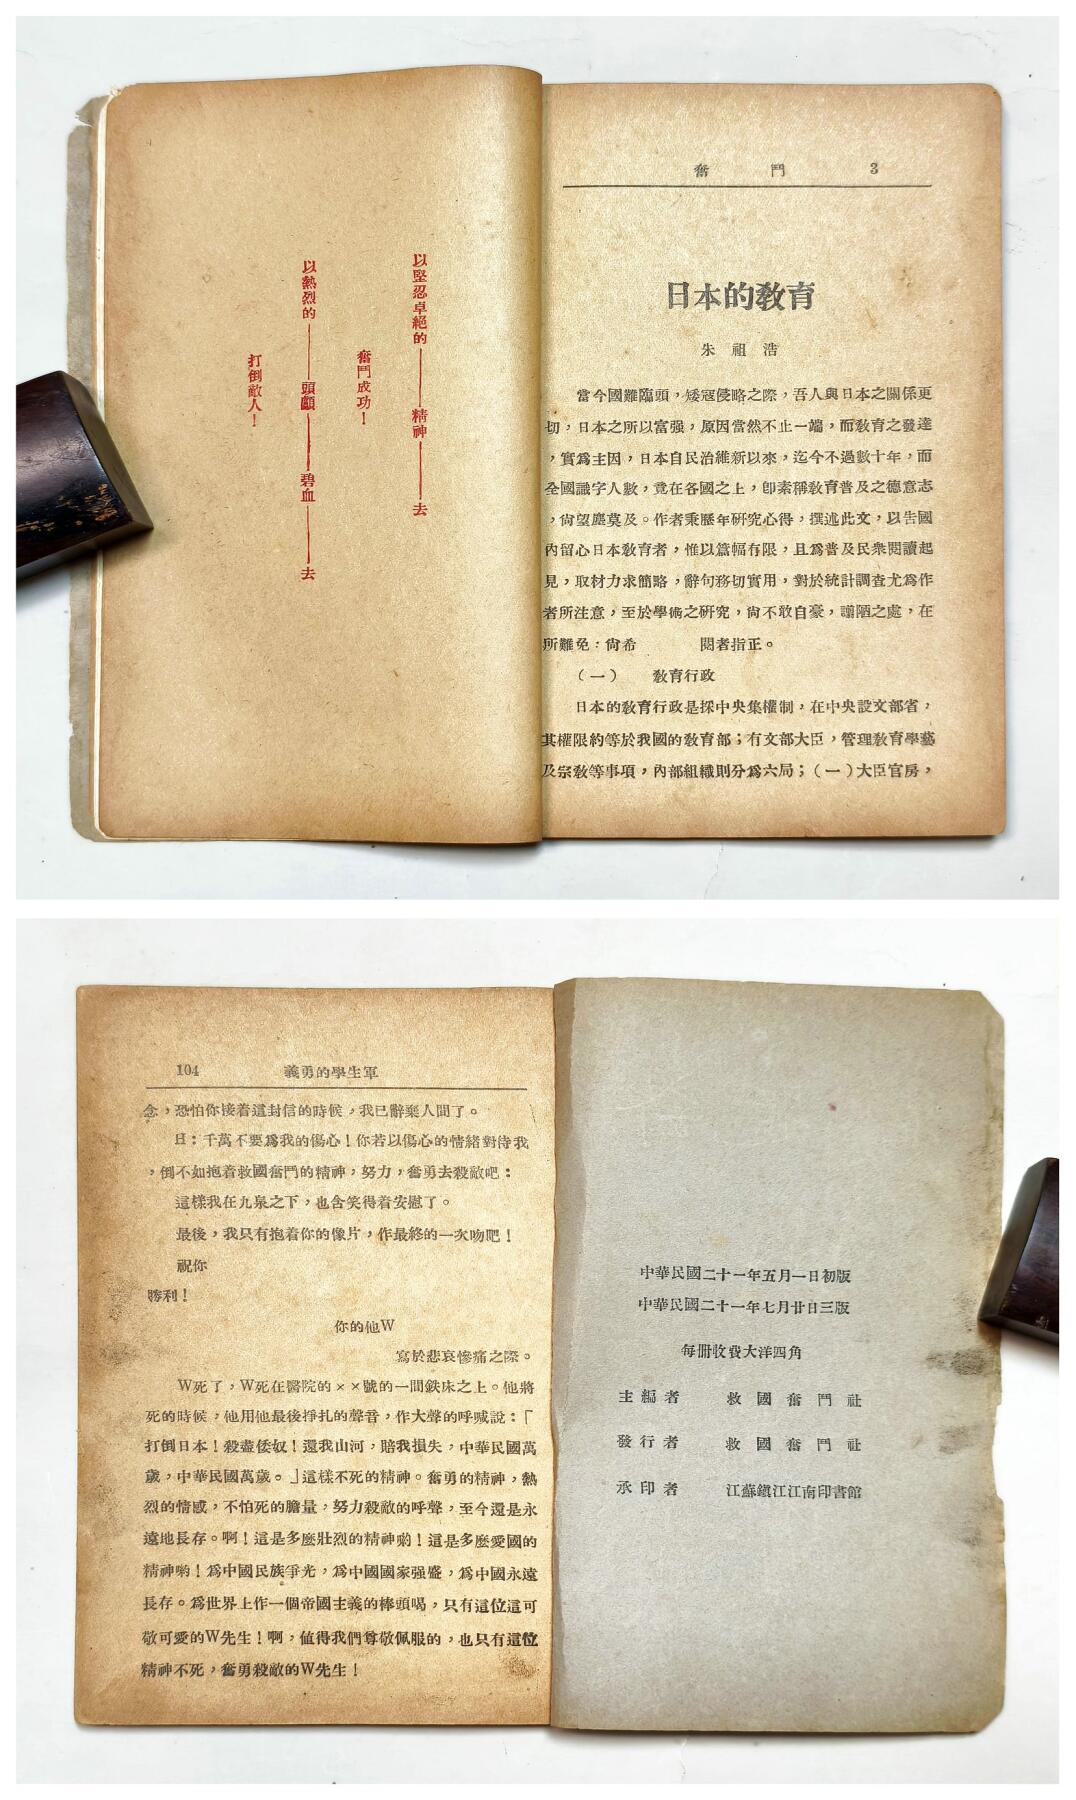 以堅忍卓絕的——精神——去
奮鬥成功！
以熱烈的——頭顱——碧血——去
打倒敵人！
奮鬥 3
日本的教育
朱祖浩
當今國難臨頭，矮寇侵略之際，吾人與日本之關係更
切，日本之所以富强，原因當然不止一端，而教育之發達
，實爲主因，日本自民治維新以來，迄今不過數十年，而
全國識字人數，竟在各國之上，卽素稱教育普及之德意志
，尙望塵莫及。作者秉歷年研究心得，撰述此文，以告國
內留心日本教育者，惟以篇幅有限，且爲普及民衆閱讀起
見，取材力求簡略，辭句務切實用，對於統計調查尤爲作
者所注意，至於學術之研究，尙不敢自豪，譾陋之處，在
所難免：尙希　　閱者指正。
（一）　教育行政
日本的教育行政是採中央集權制，在中央設文部省，
其權限約等於我國的教育部；有文部大臣，管理教育學藝
及宗教等事項，內部組織則分爲六局；（一）大臣官房，
104 義勇的學生軍
念，恐怕你接着這封信的時候，我已辭棄人間了。
日：千萬不要爲我的傷心！你若以傷心的情緒對待我
，倒不如抱着救國奮鬥的精神，努力，奮勇去殺敵吧：
這樣我在九泉之下，也含笑得着安慰了。
最後，我只有抱着你的像片，作最終的一次吻吧！
祝你
勝利！
你的他W
寫於悲哀慘痛之際。
W死了，W死在醫院的××號的一間鉄床之上。他將
死的時候，他用他最後掙扎的聲音，作大聲的呼喊說：「
打倒日本！殺盡倭奴！還我山河，賠我損失，中華民國萬
歲，中華民國萬歲。」這樣不死的精神。奮勇的精神，熱
烈的情感，不怕死的膽量，努力殺敵的呼聲，至今還是永
遠地長存。啊！這是多麽壯烈的精神喲！這是多麽愛國的
精神喲！爲中國民族爭光，爲中國國家强盛，爲中國永遠
長存。爲世界上作一個帝國主義的棒頭喝，只有這位這可
敬可愛的W先生！啊，値得我們尊敬佩服的，也只有這位
精神不死，奮勇殺敵的W先生！
中華民國二十一年五月一日初版
中華民國二十一年七月廿日三版
每冊收費大洋四角
主編者　救國奮鬥社
發行者　救國奮鬥社
承印者　江蘇鎭江江南印書館